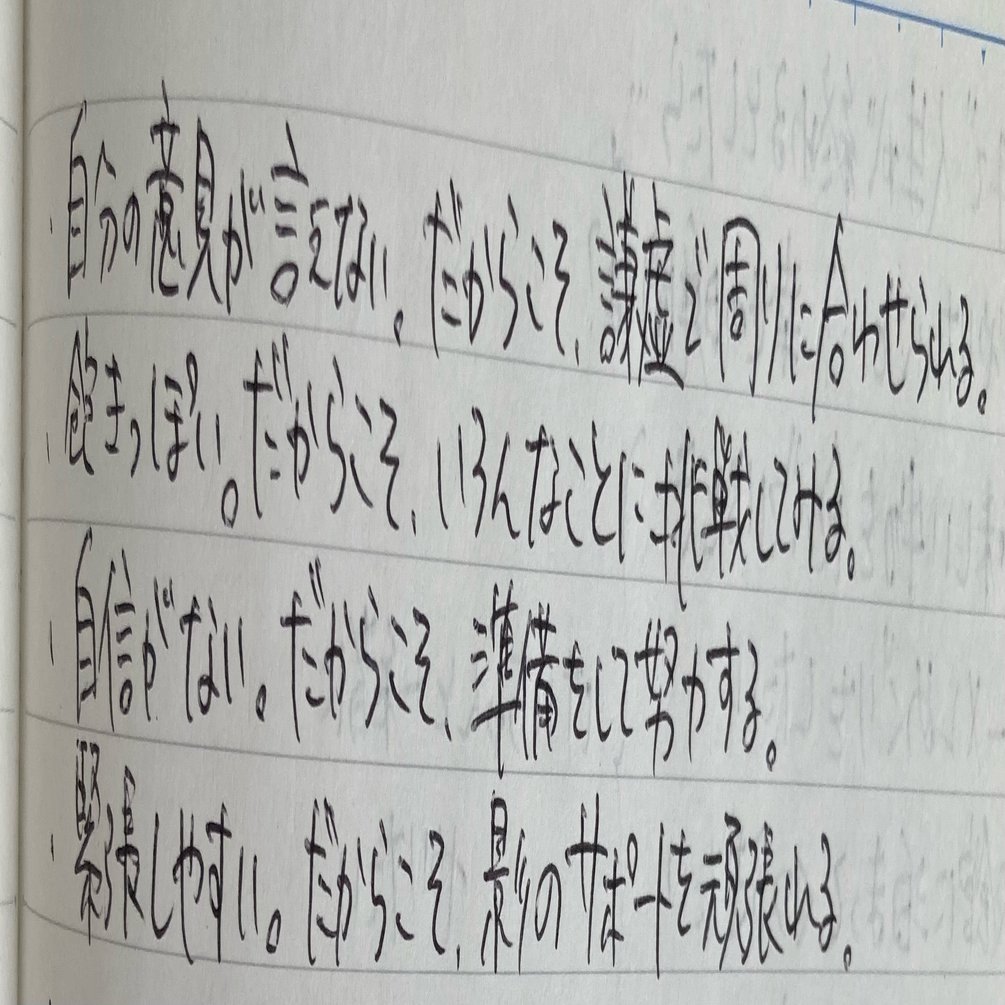 ・自分の意見が言えない。だからこそ、謙虚で周りに合わせられる。
・飽きっぽい。だからこそ、いろんなことに挑戦してみる。
・自信がない。だからこそ、準備をして努力する。
・緊張しやすい。だからこそ、影のサポートを頑張れる。